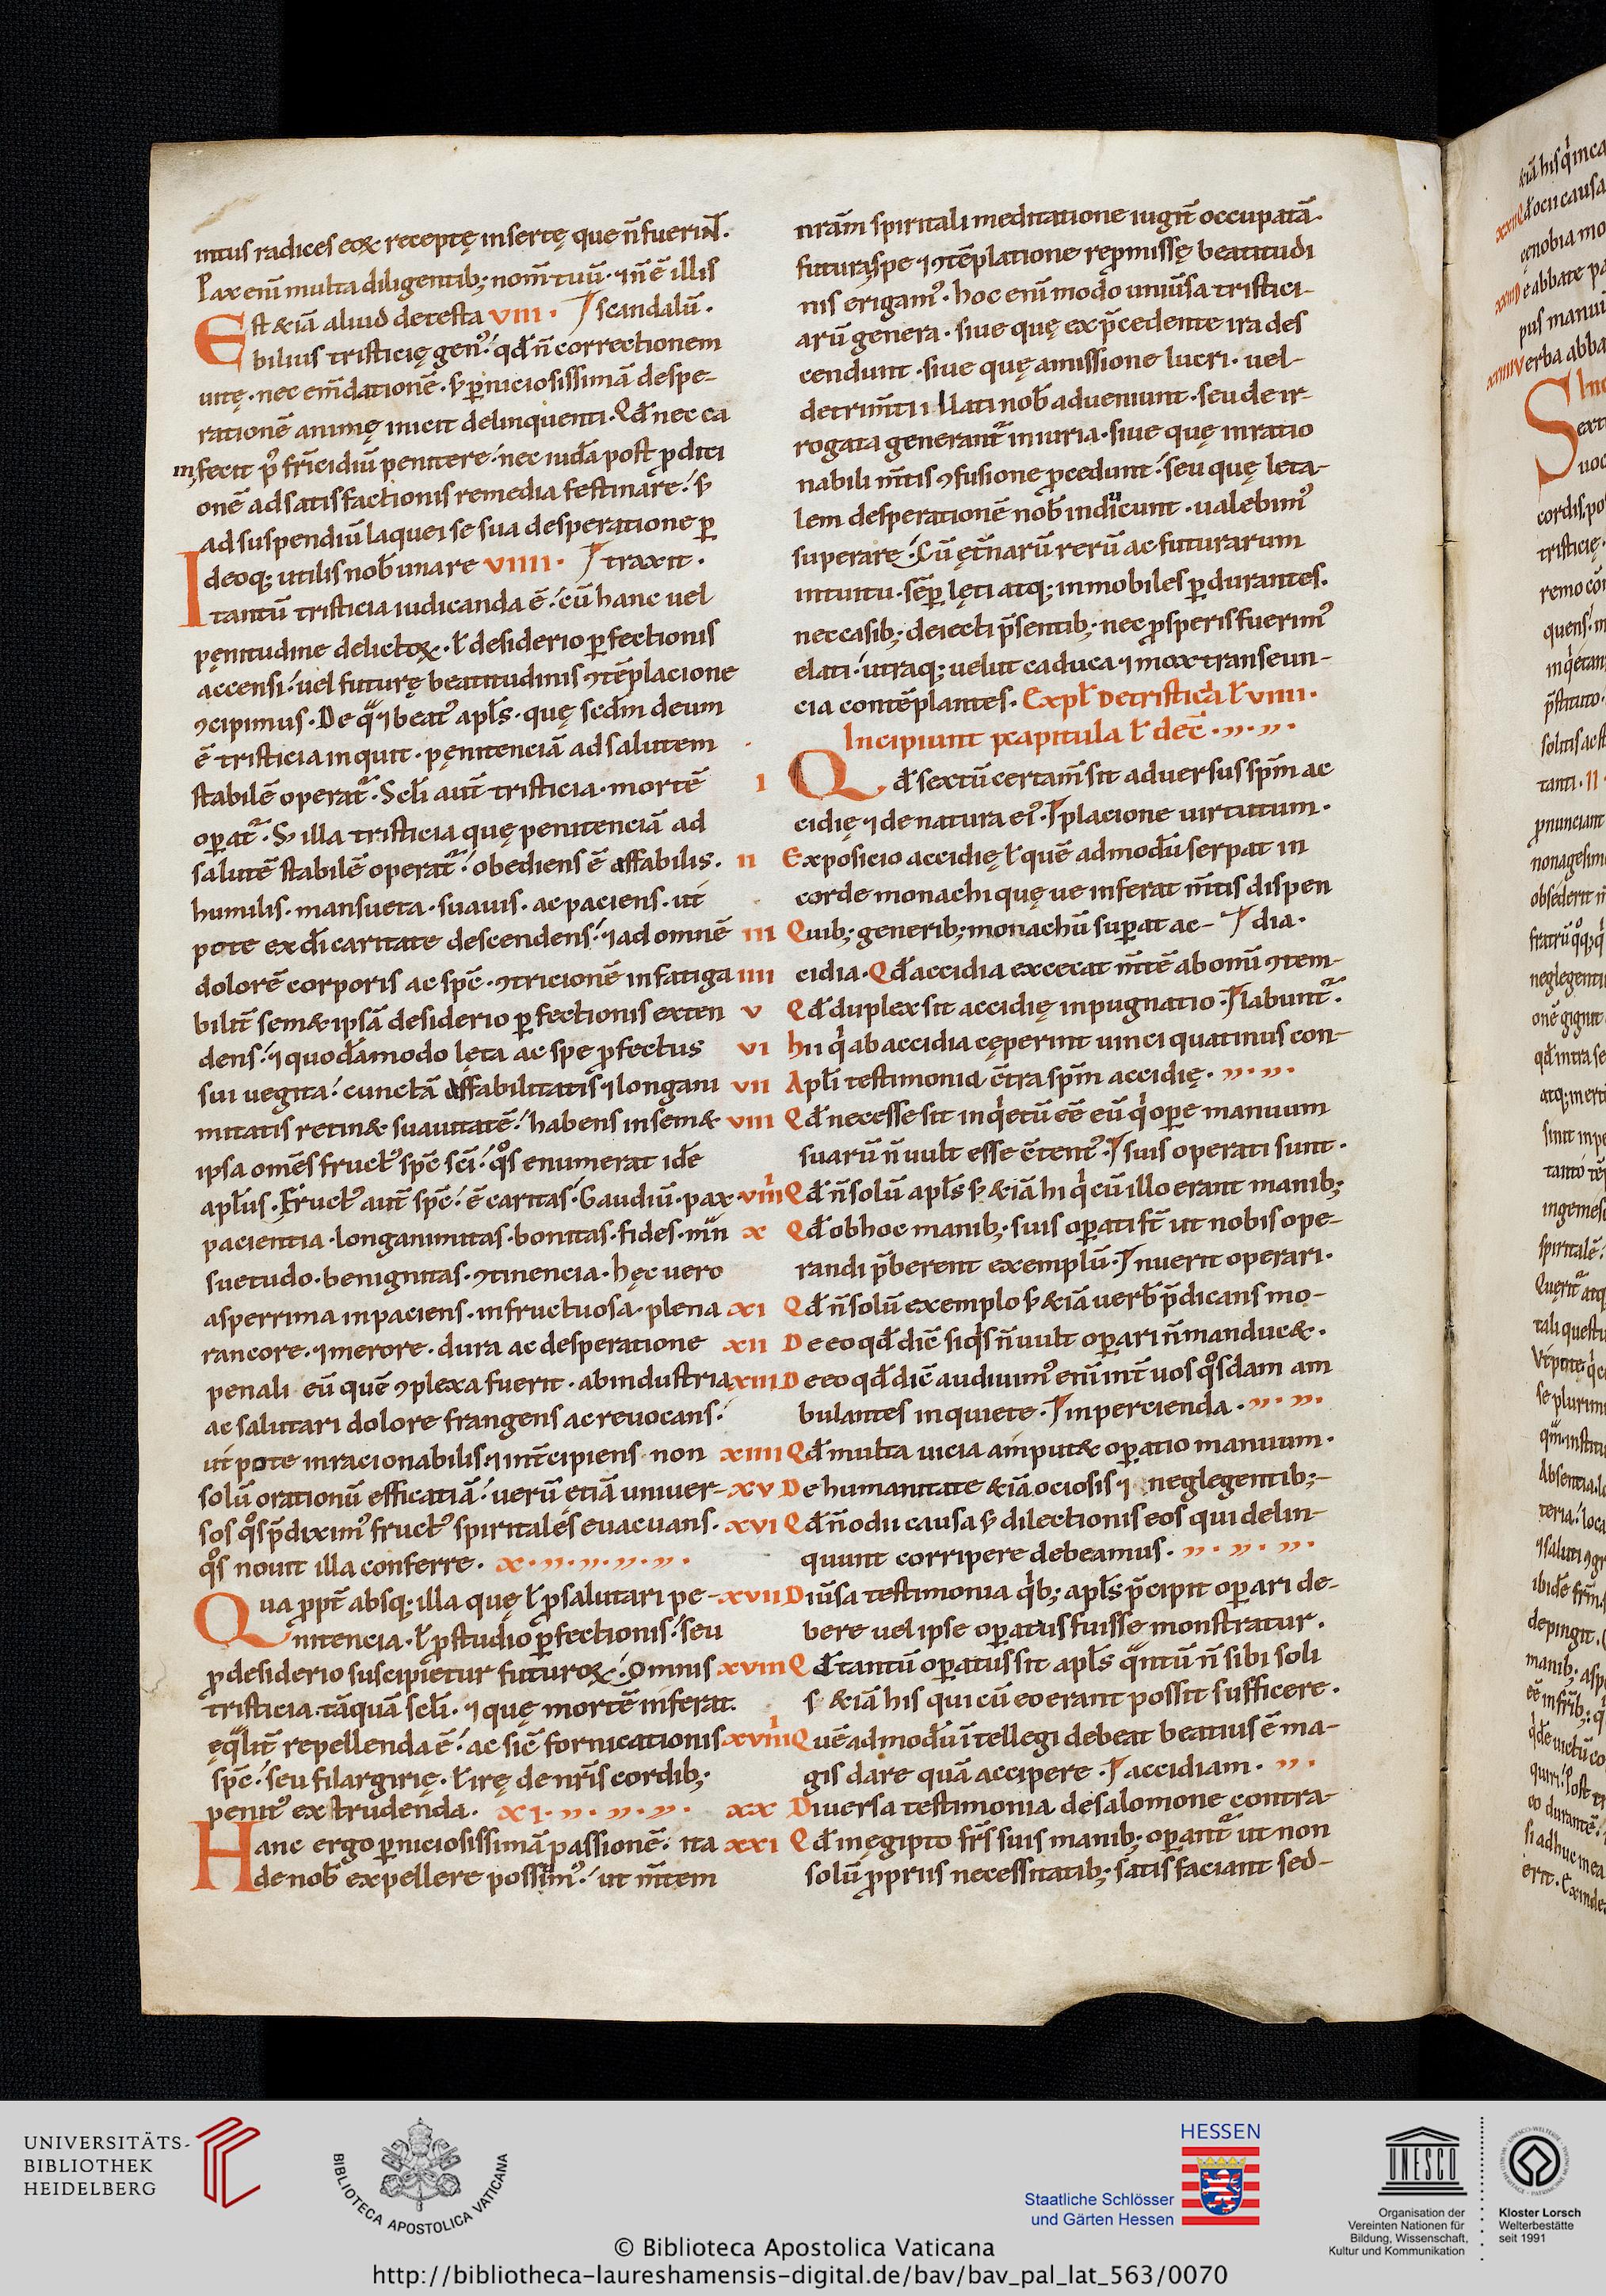 intus radices eoꝝ receptę insertę que ñ fuerint.
Pax eni᷒ multa diligentib; nom̄ tuū · ⁊ ñ ē illis
Est &iā aliud detesta VIII · scandalū .
bilius tristicię gen᷒ · qđ ñ correctionem
uitę · nec em̄dationē · s; ꝑniciosissimā despe-
rationē animę inicit delinquenti · Qđ nec ca
in fecit p᷒ fr̄icidiū penitere · nec iudā post ꝓditi
onē ad satisfactionis remedia festinare · s;
ad suspendiū laquei se sua desperatione ꝑ
Ideoq; utilis nob̄ unare VIIII · traxit .
tantū tristicia iudicanda ē · cū hanc uel
pęnitudine delictoꝝ · ł desiderio ꝑfectionis
accensi · uel futurę beatitudinis ꝯtēplacione
ꝯcipimus · De qͣ ⁊ beat᷒ apłs · quę scđm deum
ē tristicia inquit · pęnitenciā ad salutem
stabilē operat᷑ · Scłi aut̄ tristicia · mortē
oꝑat᷑ · S; illa tristicia quę penitenciā ad
salutē stabilē operat᷑ · obediens ē affabilis .
humilis · mansueta · suauis · ac paciens · ut
pote ex đi caritate descendens · ⁊ ad omnē
dolorē corporis ac sp̄c · ꝯtricionē infatiga
bilit̄ sem& ipsā desiderio ꝑfectionis exten
dens · ⁊ quodāmodo lęta ac spe ꝓfectus
sui uegita · cunctā affabilitatis ⁊ longani
mitatis retin& suauitatē · habens in sem&
ipsa omēs fruct᷒ sp̄c sc̄i · qͦs enumerat idē
apłus · Fruct᷒ aut̄ sp̄c · ē caritas · Gaudiū · pax
pacientia · longanimitas · bonitas · fides · mͣn
suetudo · benignitas · ꝯtinencia · hęc uero
asperrima inpaciens · infructuosa · plena
rancore · ⁊ merore · dura ac desperatione
penali eū quē ꝯplexa fuerit · ab industria
ac salutari dolore frangens ac reuocans ·
ut pote inracionabilis · ⁊ int̄cipiens non
solū orationū efficatiā · uerū etiā uniuer-
sos qͦs p̄diximꝰ fruct᷒ spiritales euacuans .
qͦs nouit illa conferre . X ·
Qua ꝓpt̄ absq; illa quę ł ꝓ salutari pe-
nitencia · ł ꝓ studio ꝑfectionis · seu
ꝓ desiderio suscipietur futuroꝝ · Omnis
tristicia · tāquā scłi · ⁊ quę mortē inferat
ęqͣlit̄ repellenda ē · ac sic̄ fornicationis
sp̄c · seu filargirię · ł irę de nr̄is cordib;
penit᷒ extrudenda . XI ·
Hanc ergo ꝑniciosissimā passionē · ita
de nob̄ expellere possimꝰ · ut m̄tem
nram̄ spiritali meditatione iugit̄ occupatā ·
futura spe ⁊ ꝯtēplatione repromissę beatitudi
nis erigamꝰ · hoc eni᷒ modo uniūsa tristici-
arū genera · siue quę ex p̄cedente ira des
cendunt · siue quę amissione lucri · uel
detrim̄ti illati nob̄ adueniunt · seu de ir-
rogata generant᷑ iniuria · siue quę inratio
nabili m̄tis ꝯfusione ꝓcedunt · seu quę leta-
lem desperationē nob̄ indicunt · ualebimꝰ
superare · Cū ęt̄narū rerū ac futurarum
intuitu · semꝑ lęti atq; inmobiles ꝑdurantes .
nec casib; deiecti p̄sentib; · nec ꝓsperis fuerimꝰ
elati · utraq; uelut caduca · ⁊ mox transeun-
cia contēplantes . Expł de tristicia ł VIIII .
Incipiunt capitula ł dec̄ ·
I Qđ sextū certam̄ sit aduersus sp̄m ac
cidię ⁊ de natura eiꝰ · placione uirtutum .
II Exposicio accidię ł quē admodū serpat in
corde monachi quę ue inferat m̄tis dispen
III Quib; generib; monachū suꝑat ac- dia .
IIII cidia . Qđ accidia excecat m̄tē ab omī ꝯtem-
V Qđ duplex sit accidię inpugnatio · labunt᷑ .
VI hii qͥ ab accidia cęperint uinci quatinus con-
VII Apłi testimonia c̄tra sp̄m accidię .
VIII Qđ necesse sit inqͥetū eē eū qͥ oꝑe manuum
suarū ñ uult esse c̄tent᷒ · suis operati sunt .
VIIII Qđ ñ solū apłs s; &iā hi qͥ cū illo erant manib;
X Qđ ob hoc manib; suis oꝑati st̄ ut nobis ope-
randi p̄berent exemplū · nuerit operari .
XI Qđ ñ solū exemplo s; &iā uerb̄ p̄dicans mo-
XII De eo qđ dic̄ si qͥs ñ uult oꝑari ñ manduc& .
XIII De eo qđ dic̄ audiuimꝰ eni᷒ int̄ uos qͦsdam am
bulantes inquiete · inpercienda .
XIIII Qđ multa uicia amput& oꝑatio manuum .
XV De humanitate &iā ociosis ⁊ neglegentib;
XVI Qđ ñ odii causa s; dilectionis eos qui delin-
quunt corripere debeamus .
XVII Diūsa testimonia qͥb; apłs p̄cipit oꝑari de-
bere uel ipse oꝑatus fuisse monstratur .
XVIII Qđ tantū oꝑatus sit apłs qͣntū ñ sibi soli
s; &iā his qui cū eo erant possit sufficere .
XVIIII Quēadmodū ītellegi debeat beatius ē ma-
gis dare quā accipere · accidiam .
XX Diuersa testimonia de salomone contra-
XXI Qđ in ęgipto fr̄s suis manib; oꝑant᷑ ut non
solū ꝓpriis necessitatib; satisfaciant sed-
UNIVERSITÄTS-
BIBLIOTHEK
HEIDELBERG
BIBLIOTECA APOSTOLICA VATICANA
HESSEN
Staatliche Schlösser
und Gärten Hessen
UNESCO
Organisation der
Vereinten Nationen für
Bildung, Wissenschaft,
Kultur und Kommunikation
Kloster Lorsch
Welterbestätte
seit 1991
© Biblioteca Apostolica Vaticana
http://bibliotheca-laureshamensis-digital.de/bav/bav_pal_lat_563/0070